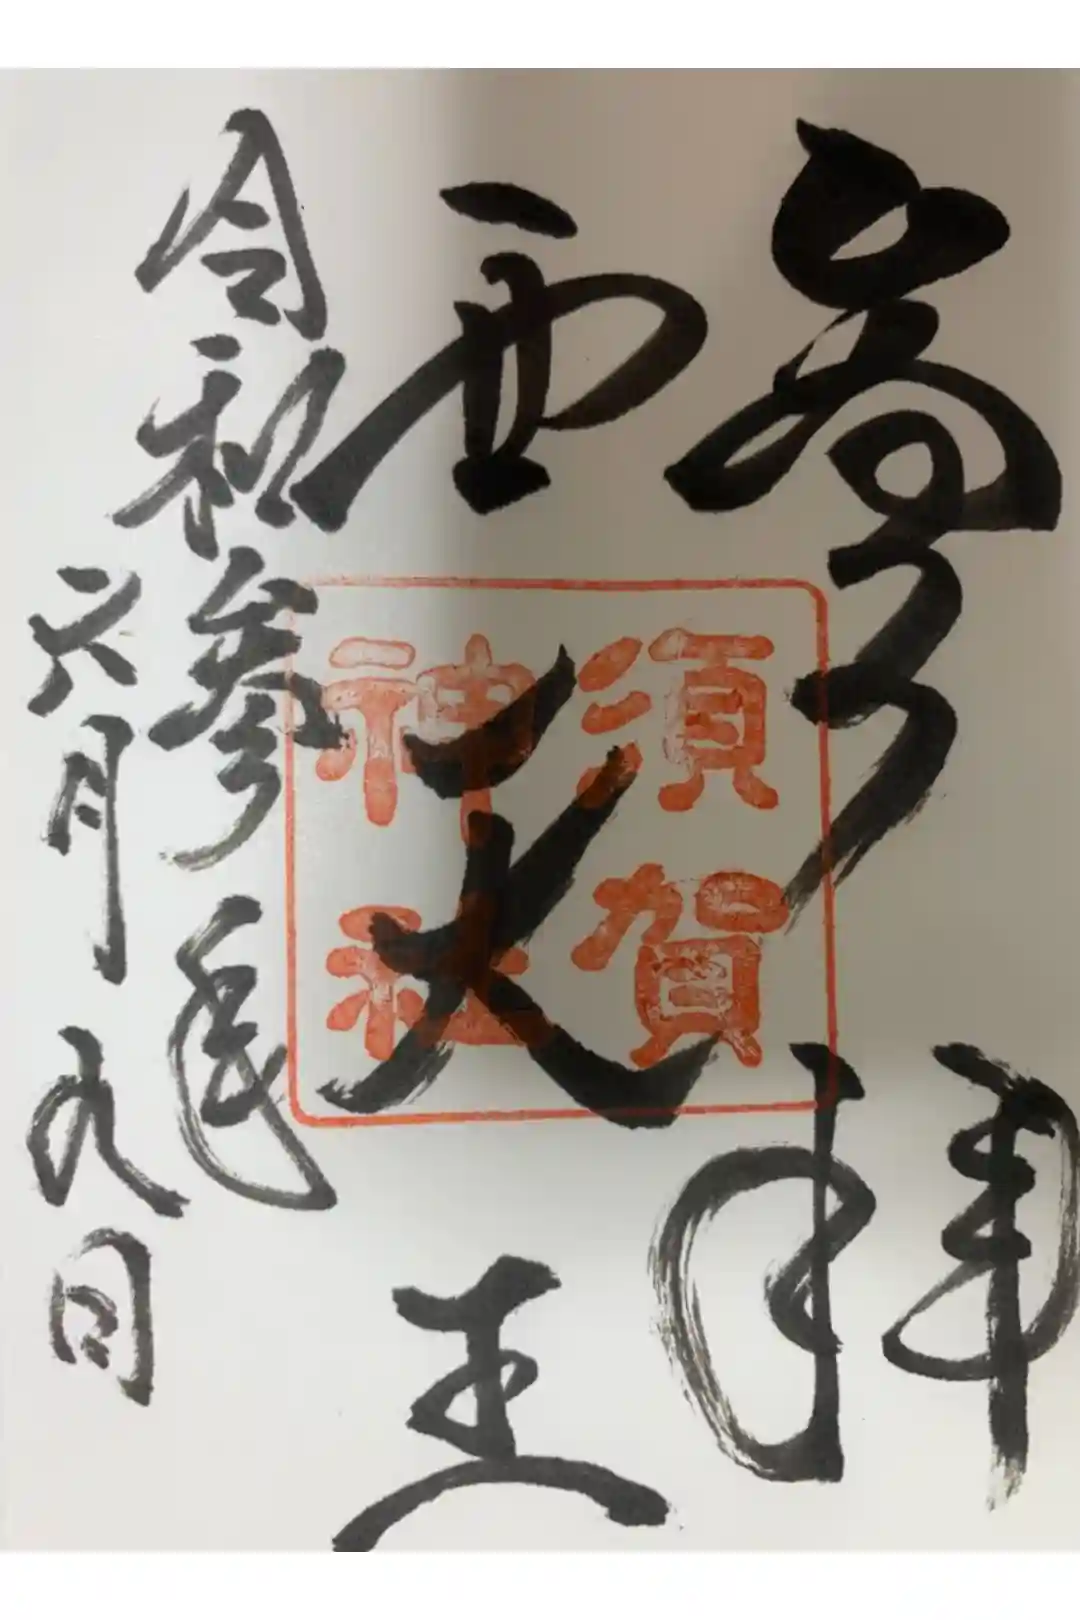 拝
西天王
須賀
神社
令和参年
六月九日